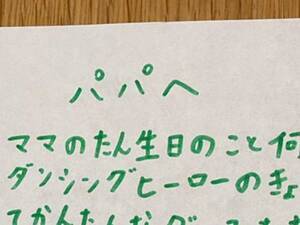 パパへ
ママのたん生日のこと何
ダンシングヒーローのきょ
てかんたんなダ